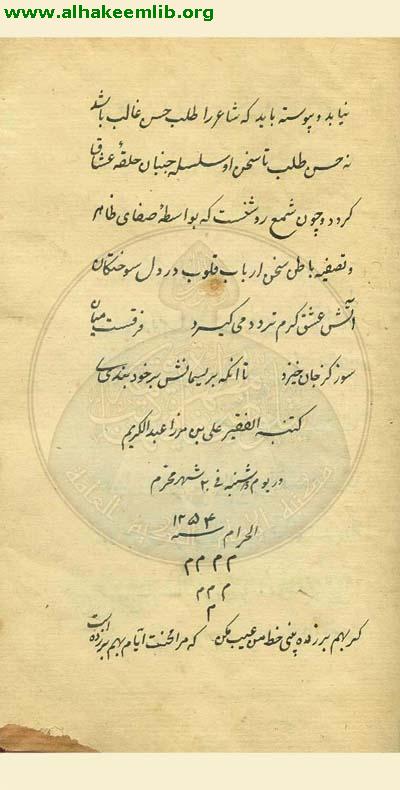 www.alhakeemlib.org
نیابد و پیوسته باید که شاعر را طلب حسن غالب باشد
نه حسن طلب تا سخن او سلسله جنبان حلقهٔ عشاق
گردد و چون شمع روشنست که بواسطهٔ صفای ظاهر
و تصفیه باطن سخن ارباب قلوب در دل سوختگان
آتش عشق گرم تردد می گیرد فرقست میان
سوز کز جان خیزد تا انکه بریسمانش بر خود بندی
کتبه الفقیر علی بن مرزا عبدالکریم
در یوم شنبه فی ۲ شهر محرم
الحرام سنه ۱۲۵۴
م م م م
م م م
م
گر بهم بر زده بینی خط من عیب مکن که مرا محنت ایام بهم بر زده است